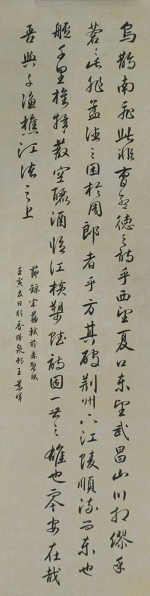 烏鵲南飛此非曹孟德之詩乎西望夏口東望武昌山川相繆鬱乎
蒼蒼此非孟德之困於周郎者乎方其破荊州下江陵順流而東也
艫千里旌旗蔽空釃酒臨江橫槊賦詩固一世之雄也而今安在哉
吾與子漁樵江渚之上
節錄宋蘇軾前赤壁賦
壬寅夏日於香